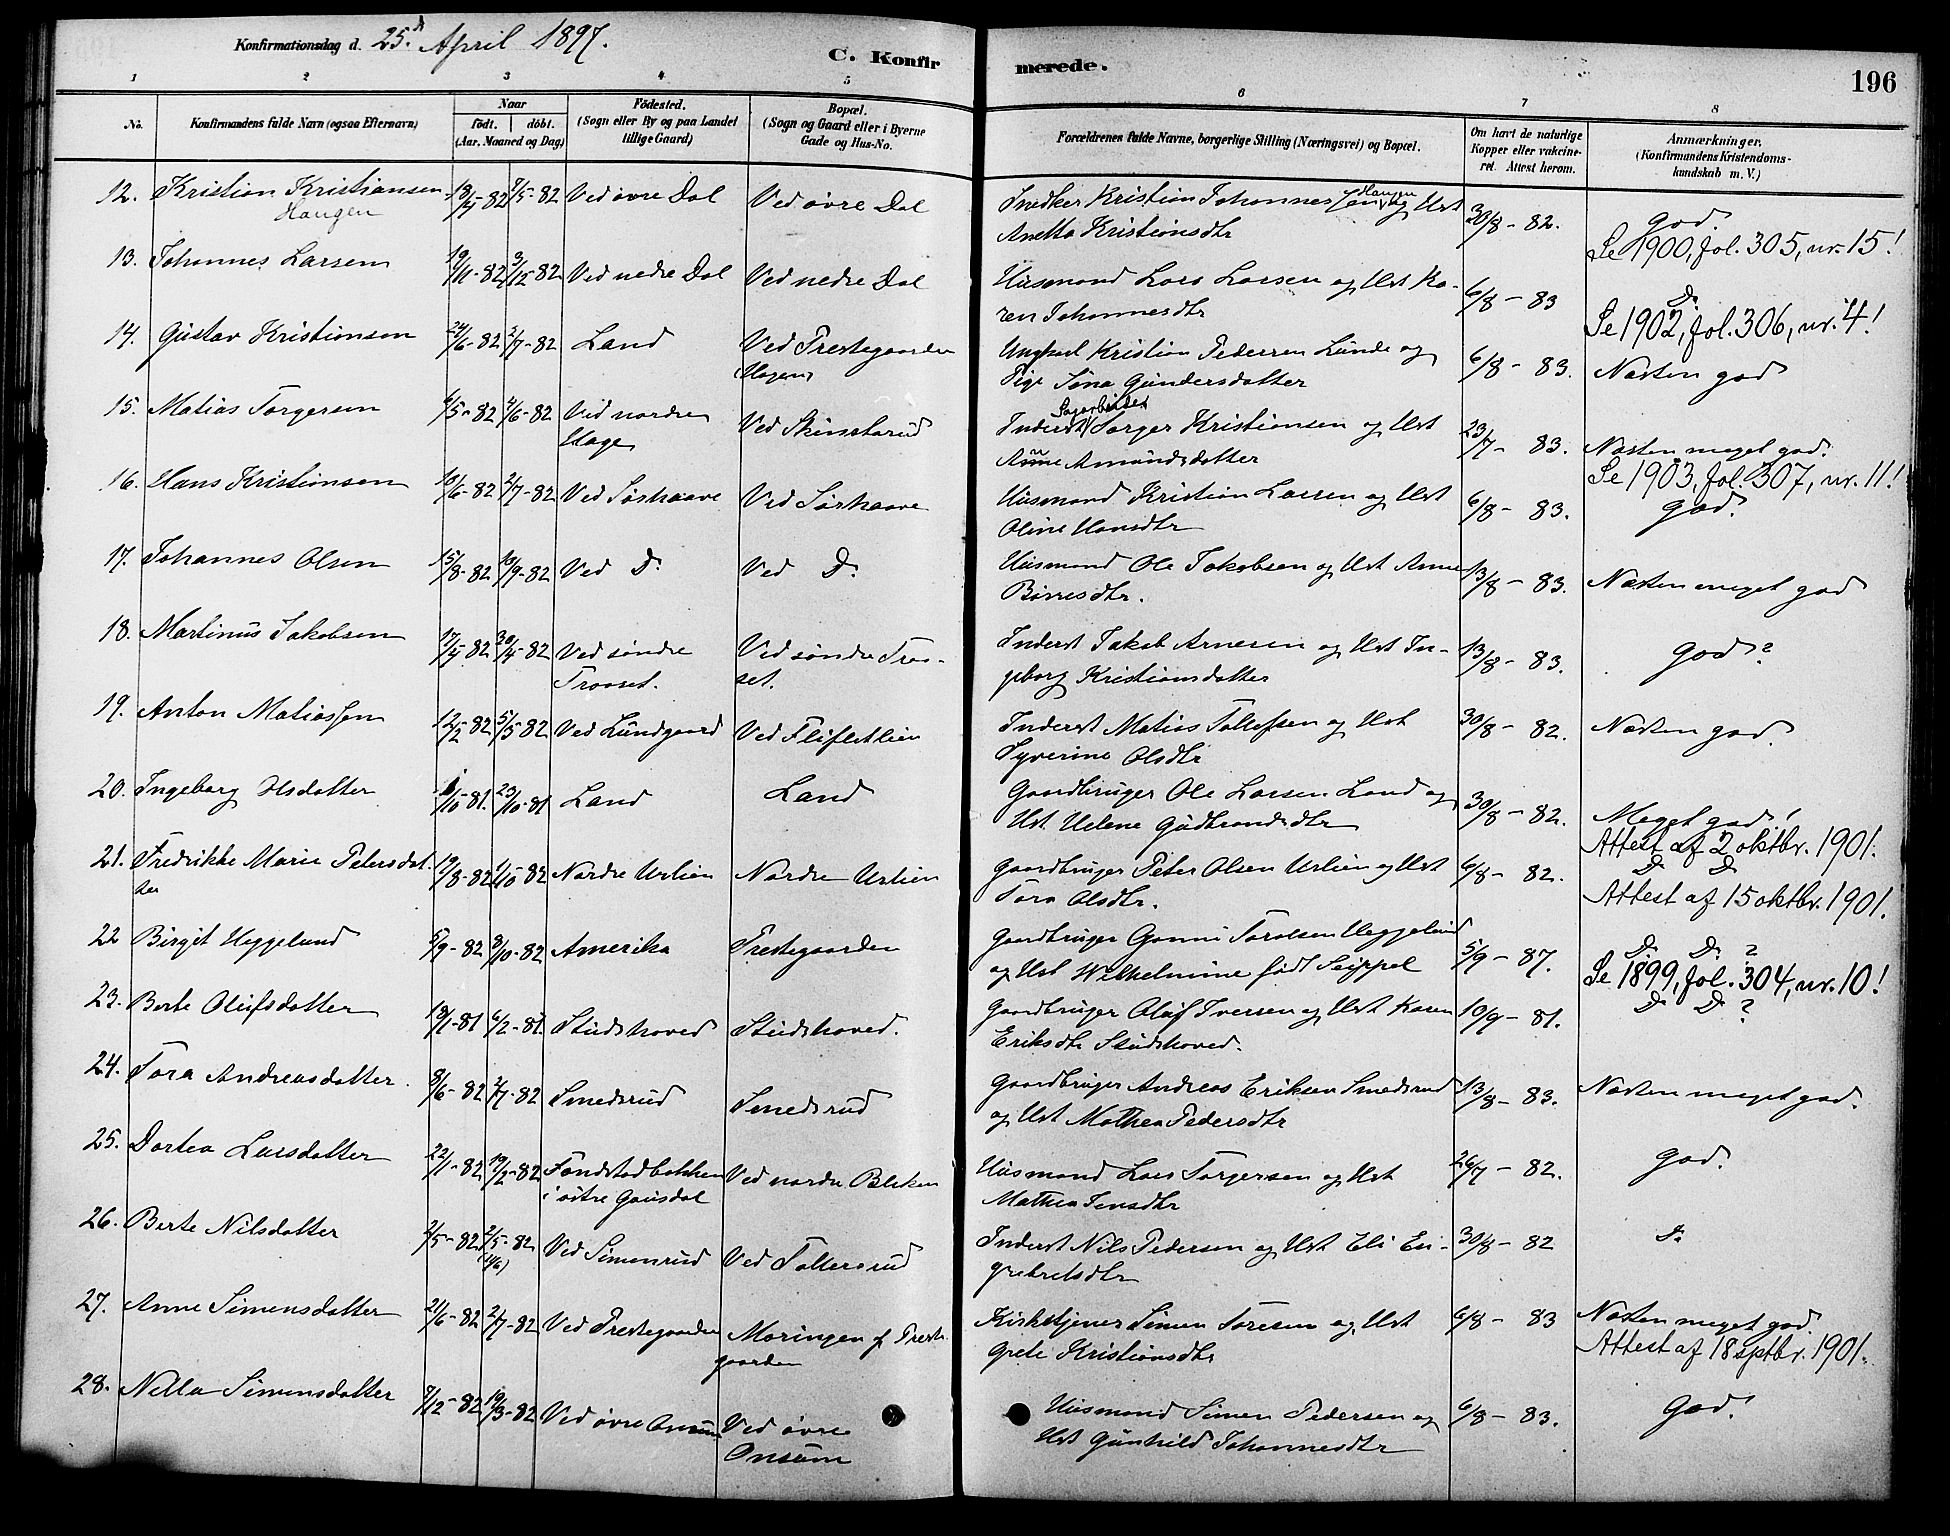 Konfirmationsdag d. 25.d April 1897.
C. Konfir
merede.
196
1 2 3 4 5 6 7 8
No. Konfirmandens fulde Navn (ogsaa Efternavn) Naar födt. döbt. (Aar, Maaned og Dag) Födested. (Sogn eller By og paa Landet tillige Gaard) Bopæl. (Sogn og Gaard eller i Byerne Gade og Hus-No.
Forældrenes fulde Navne, borgerlige Stilling (Næringsvei) og Bopæl. Om havt de naturlige Kopper eller vakcineret. Attest herom. Anmærkninger. (Konfirmandens Kristendomskundskab m. V.)
12. Kristian Kristiansen 7/5-82 Ved övre Dal Ved övre Dal Snedker Kristian Johannessen Haugen og Hst 30/8-82. god.
Haugen
Anetta Kristiansdtr
Se 1900, fol. 305, nr. 15!
13. Johannes Larsen 19/11-82 3/12-82 Ved nedre Dal Ved nedre Dal Husmand Lars Larsen og Hst Ka- 6/8-83 D.
ren Johannesdtr
Se 1902, fol. 306, nr. 4!
14. Gustav Kristiansen 24/6-82 2/7-82 Land Ved Prestegaarden Ungkarl Kristian Pedersen Lunde og 6/8-83. Næsten god
Hagen
Pige Sina Gundersdatter
15. Matias Torgersen 6/5-82 4/6-82 Ved nordre Ved Skinstarud Inderst Sagarbeider Torger Kristiansen og Hst 23/7-83. Næsten meget god.
Hage
Anne Amundsdatter
Se 1903, fol. 307, nr. 11!
16. Hans Kristiansen 10/6-82 2/7-82 Ved Sørhaave Ved Sørhaave Husmand Kristian Larsen og Hst 6/8-83. god.
Oline Hansdtr
17. Johannes Olsen 15/8-82 10/9-82 Ved D. Ved D. Husmand Ole Jakobsen og Hst Anne 13/8-83. Næsten meget god
Börresdtr.
18. Martinus Jakobsen 17/4-82 30/4-82 Ved søndre Ved søndre Traa- Inderst Jakob Arnesen og Hst In- 13/8-83. god?
Traaset. set.
geborg Kristiansdatter
19. Anton Matiassen 12/2-82 5/5-82 Ved Lundgaard Ved Flifletlien Inderst Matias Tollefsen og Hst 30/8-82. Næsten god.
Syverine Olsdtr
20. Ingeborg Olsdatter 1/10-81. 23/10-81 Land Land Gaardbruger Ole Larsen Land og 30/8-82. Meget god!
Hst. Helene Gudbrandsdtr
Attest af 2 oktbr. 1901.
21. Fredrikke Marie Petersdat- 19/8-82 1/10-82 Nordre Urlien Nordre Urlien Gaardbruger Peter Olsen Urlien og Hst 6/8-82. D. D.
ter
Tora Olsdtr.
Attest af 15 oktbr. 1901.
22 Birgit Heggelund 5/9-82 8/10-82 Amerika Prestegaarden Gaardbruger Gunni Tarolsen Heggelund 5/9-87. D. D. ?
og Hst Wilhelmine født Seippel
Se 1899, fol. 304, nr. 10!
23. Berte Olufsdatter 18/1-81 6/2-81. Studshoved Studshoved. Gaardbruger Oluf Iversen og Hst Karen 10/9-81. D. D. ?
Eriksdtr Studshoved.
24. Tora Andreasdatter. 8/6-82 2/7-82 Smedsrud Smedsrud Gaardbruger Andreas Eriksen Smedsrud 13/8-83. Næsten meget god.
og Hst Mathea Pedersdtr
25. Dortea Larsdatter 22/1-82 19/2-82 Fonstadbakken Ved nordre Bleken Husmand Lars Torgersen og Hst 26/7-82. God.
i östre Gausdal
Mathea Jensdtr
26. Berte Nilsdatter 2/5-82 2/5-82 Ved Simenrud Ved Tollersrud Inderst Nils Pedersen og Hst Eli En- 30/8-82 D.
(11/6)
grebretsdtr
27. Anne Simensdatter 21/6-82 2/7-82 Ved Prestegaarden Moringen af Preste- Kirketjener Simen Toresen og Hst 6/8-83 Næsten meget god.
gaarden
Grete Kristiansdtr
Attest af 18 septbr. 1901.
28. Nilla Simensdatter 19/3-82 Ved övre Onsum Ved övre Husmand Simen Pedersen og 6/8-83. God!
Onsum
Hst Gunhild Johannesdtr